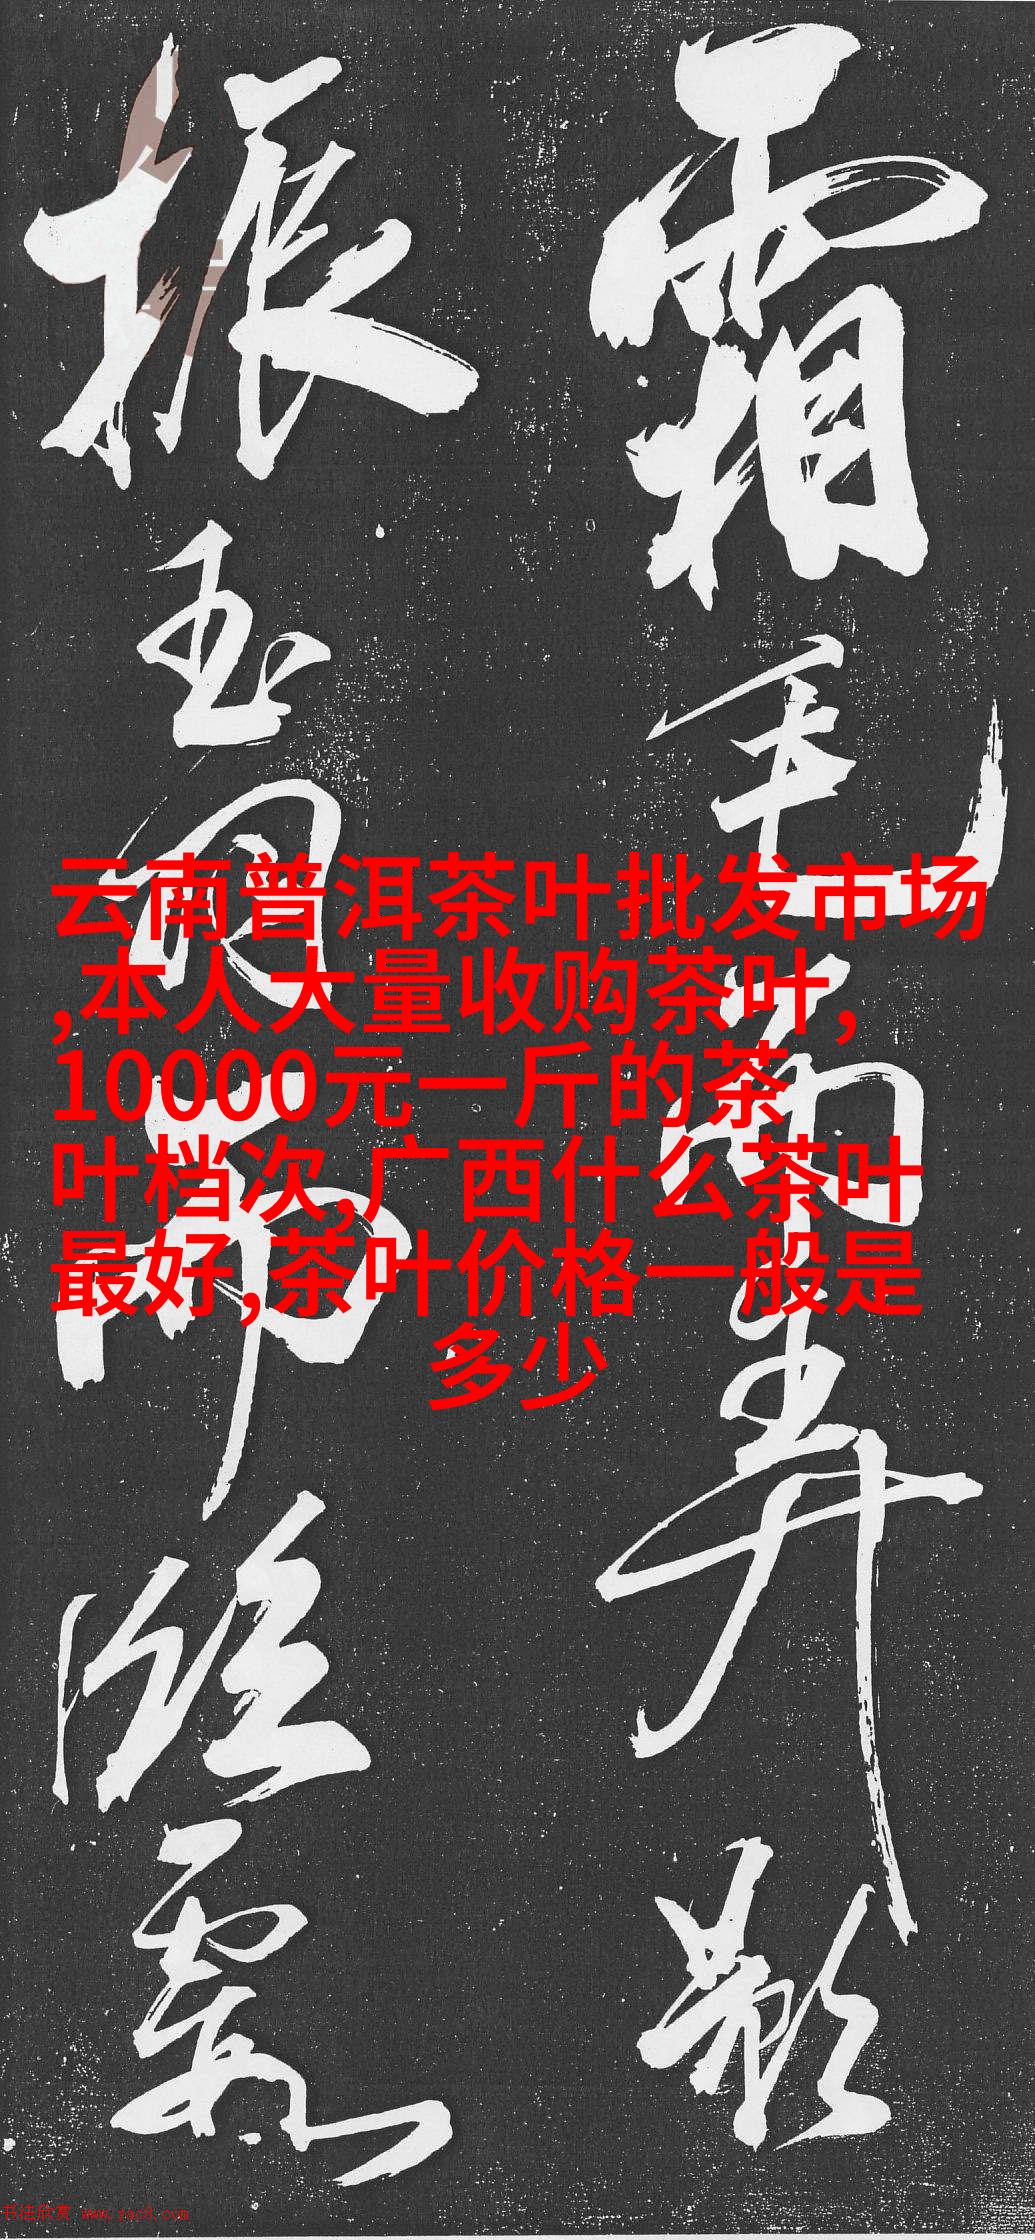 霜毛而弄影
振玉羽而臨霞
云南普洱茶叶批发市场
,本人大量收购茶叶,
10000元一斤的茶
叶档次,广西什么茶叶
最好,茶叶价格一般是
多少
书法欣赏 www.yac8.com